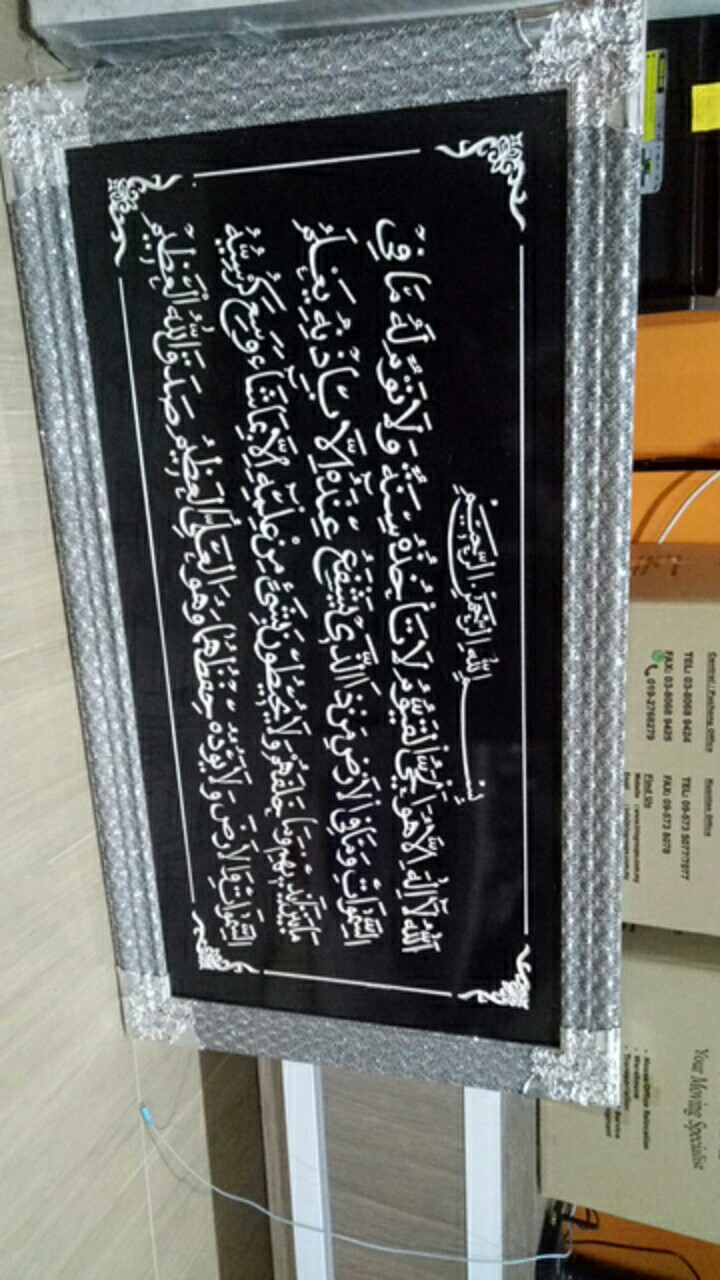 بِسْمِ اللهِ الرَّحْمٰنِ الرَّحِيْمِ
اَللهُ لَآ اِلٰهَ اِلَّا هُوَ اَلْحَيُّ الْقَيُّوْمُ لَا تَأْخُذُهُ سِنَةٌ وَلَا نَوْمٌ لَهُ مَا فِى
السَّمٰوَاتِ وَمَا فِى الْاَرْضِ مَنْ ذَا الَّذِىْ يَشْفَعُ عِنْدَهُ اِلَّا بِاِذْنِهِ يَعْلَمُ
مَا بَيْنَ اَيْدِيْهِمْ وَمَا خَلْفَهُمْ وَلَا يُحِيْطُوْنَ بِشَىْءٍ مِنْ عِلْمِهِ اِلَّا بِمَا شَاءَ وَسِعَ كُرْسِيُّهُ
السَّمٰوَاتِ وَالْاَرْضَ وَلَا يَؤُدُهُ حِفْظُهُمَا وَهُوَ الْعَلِىُّ الْعَظِيْمُ صَدَقَ اللهُ الْعَظِيْمُ
Central / Puchong Office
TEL: 03-8068 9424
FAX: 03-8068 9425
019-2768279
Kuantan Office
TEL: 09-573 5077/7077
FAX: 09-573 8078
Find Us
Website
Email
Your Moving Specialist
- House/Office Relocation
- Warehouse
- Transportation
Service